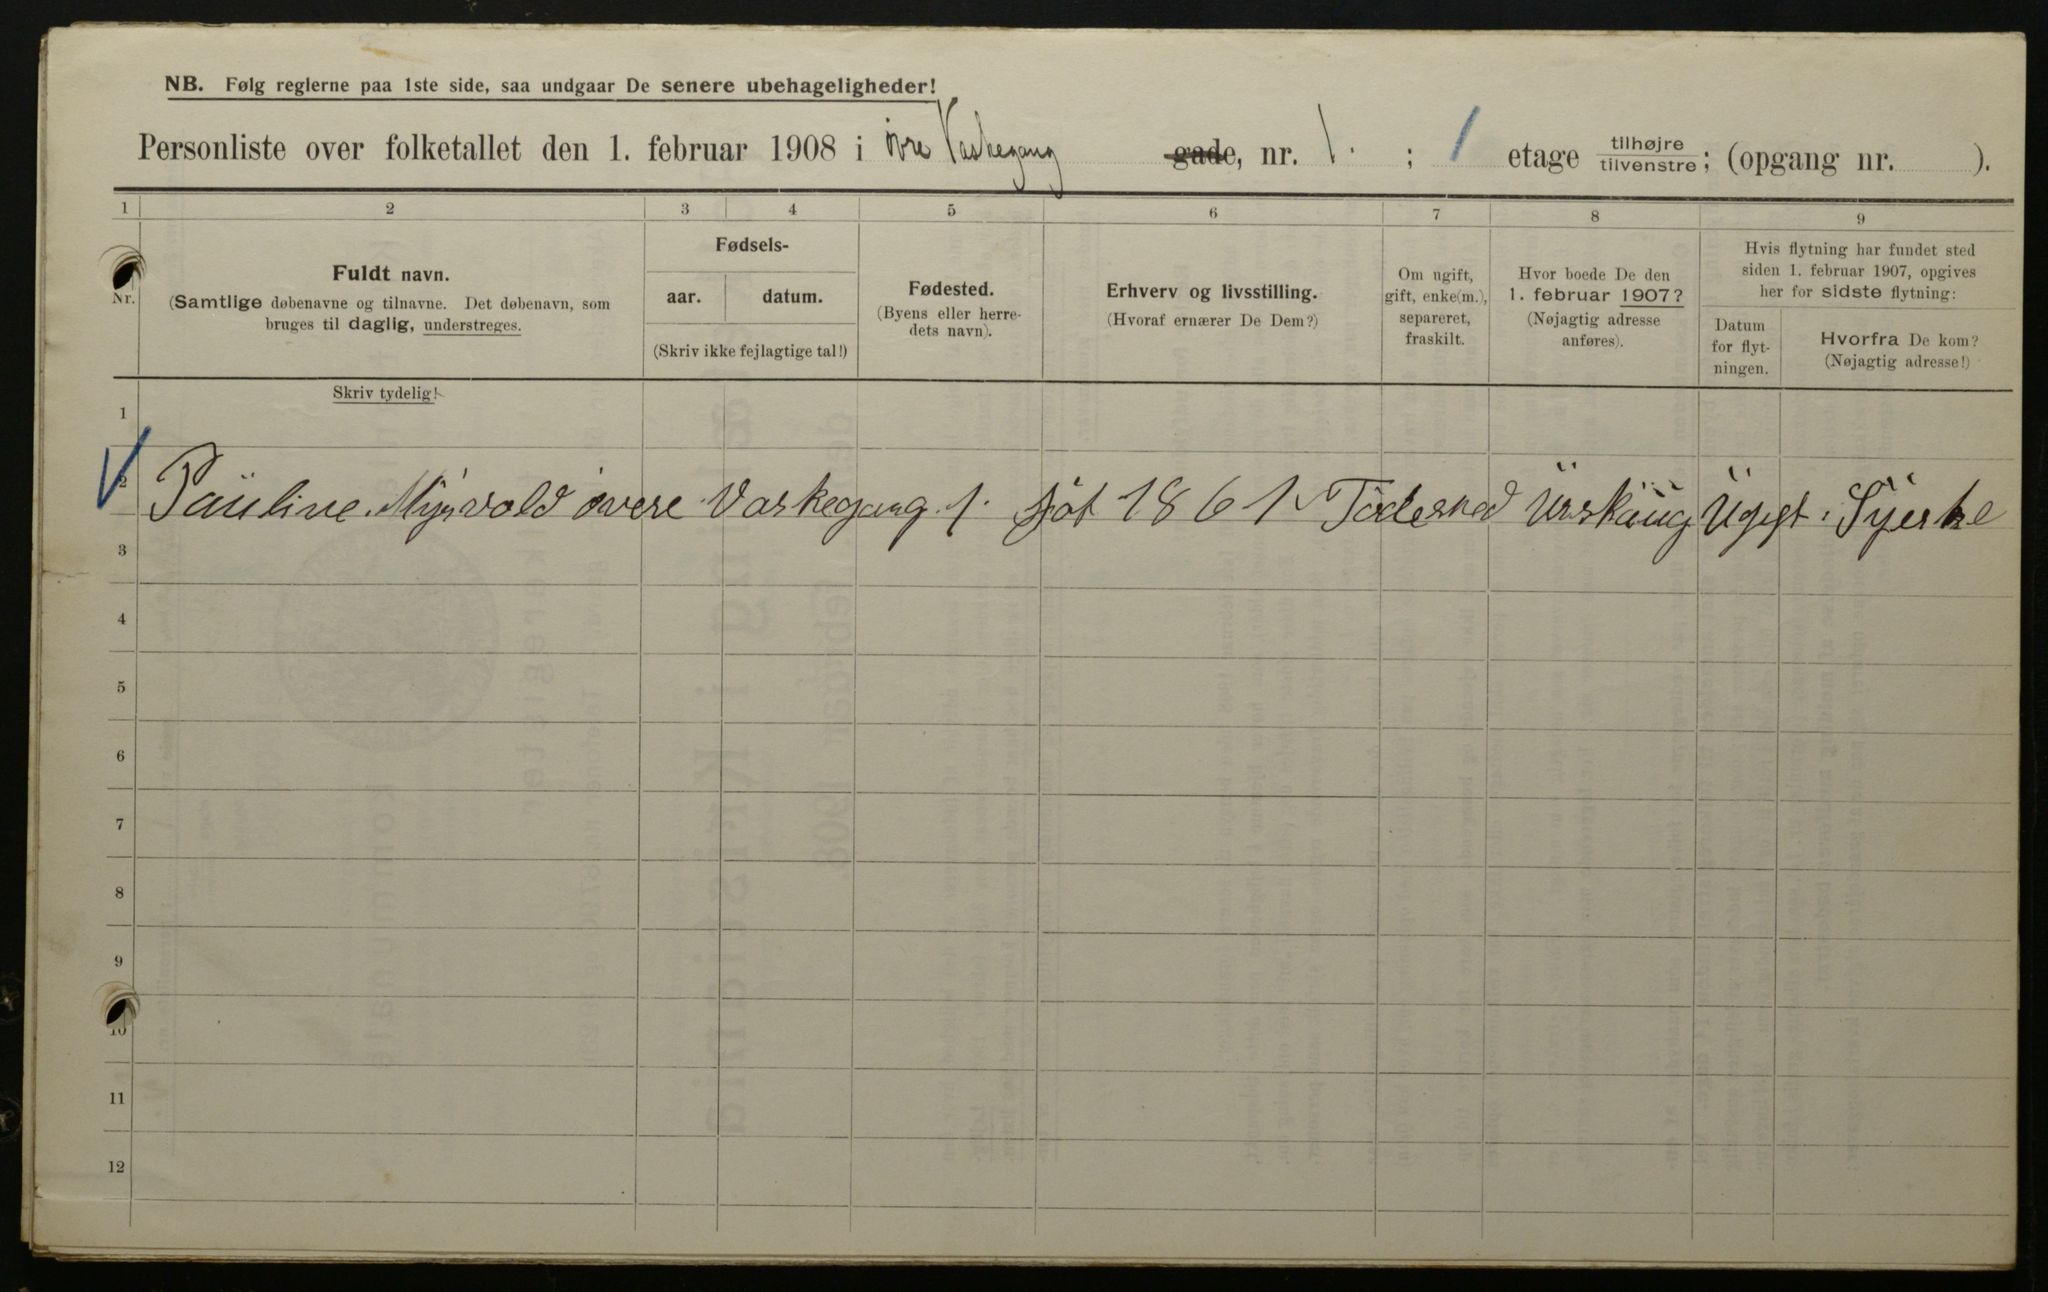 NB. Følg reglerne paa 1ste side, saa undgaar De senere ubehageligheder!
Personliste over folketallet den 1. februar 1908 i øvre Vaskegang gade, nr. 1. ; 1 etage tilhøjre tilvenstre; (opgang nr. ).
1 2 3 4 5 6 7 8 9
Nr.
Fuldt navn.
(Samtlige døbenavne og tilnavne. Det døbenavn, som
bruges til daglig, understreges.
Fødsels-
aar. datum.
(Skriv ikke fejlagtige tal!)
Fødested.
(Byens eller herre-
dets navn).
Erhverv og livsstilling.
(Hvoraf ernærer De Dem?)
Om ugift,
gift, enke(m.),
separeret,
fraskilt.
Hvor boede De den
1. februar 1907?
(Nøjagtig adresse
anføres).
Hvis flytning har fundet sted
siden 1. februar 1907, opgives
her for sidste flytning:
Datum
for flyt-
ningen.
Hvorfra De kom?
(Nøjagtig adresse!)
Skriv tydelig!
1
2 Pauline Myrvold øvere Vaskegang 1. føt 1861 Fødested Urskaug Ugift. Syerske
3
4
5
6
7
8
9
10
11
12